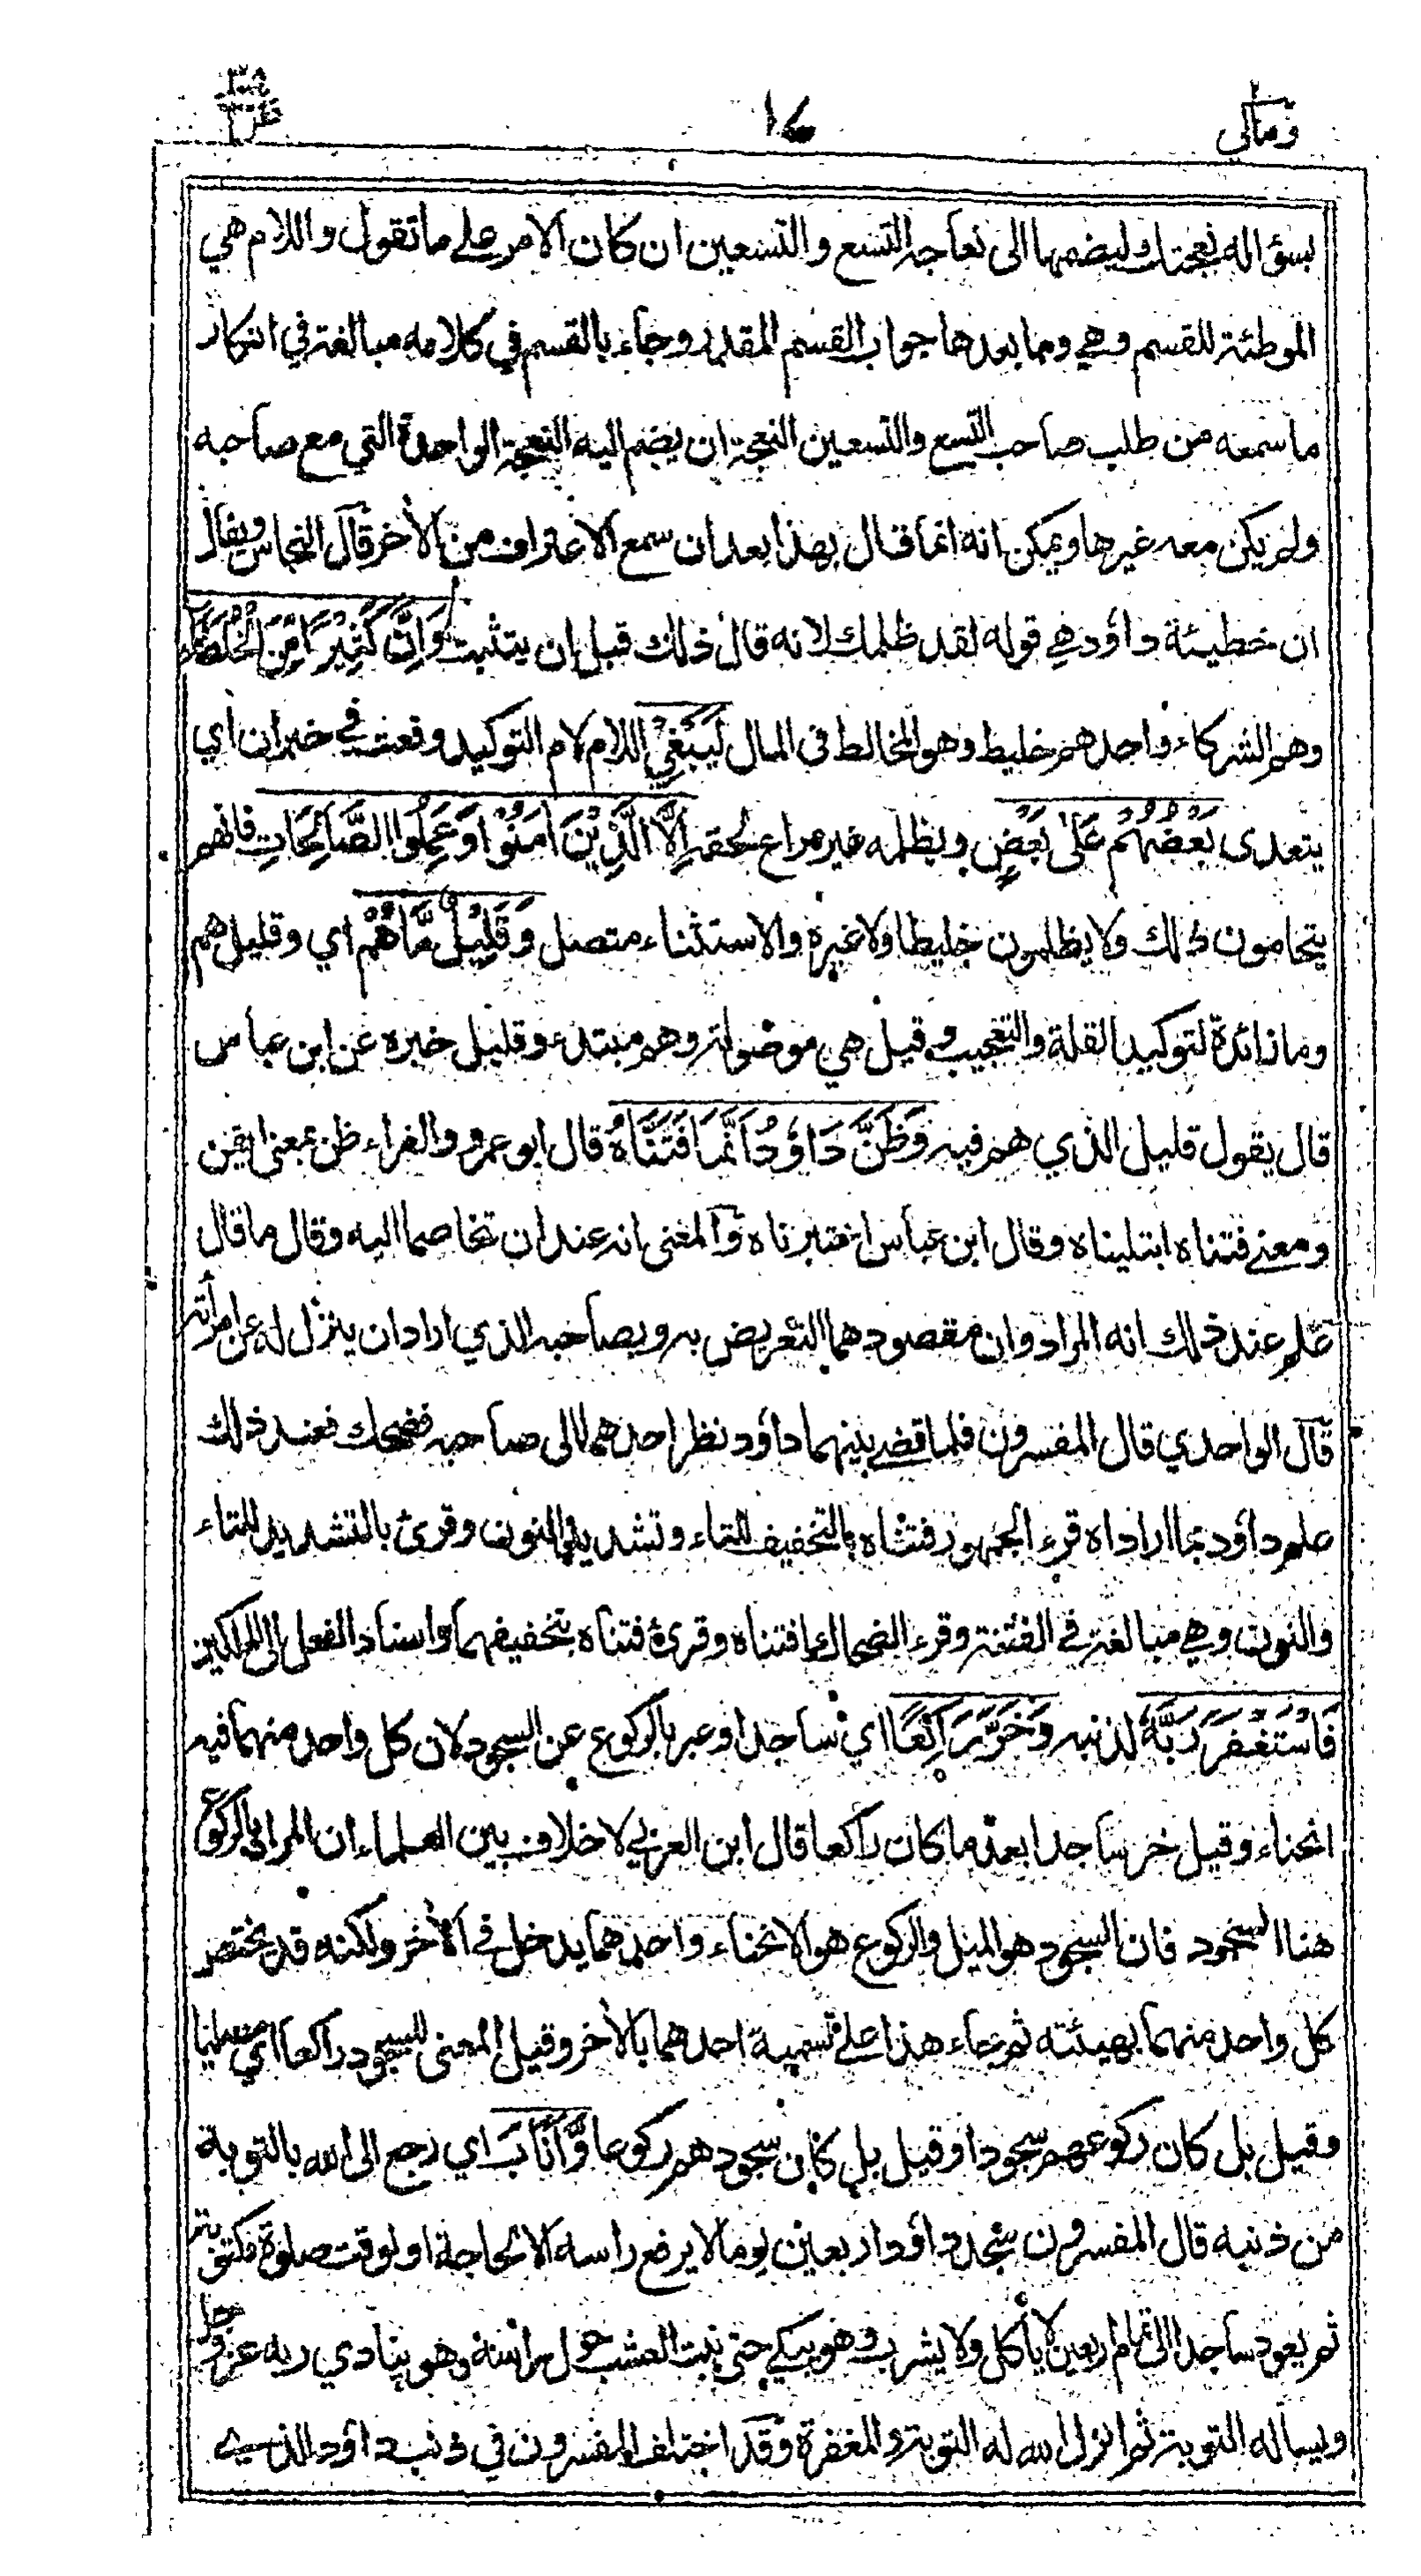 ومالي ١٦ ص ٣٨
بسؤاله نعجتك وليضمها الى نعاجه التسع والتسعين ان كان الامر على ما تقول واللام هي
الموطئة للقسم وهي وما بعدها جواب القسم المقدر وجاء بالقسم في كلامه مبالغة في انكار
ما سمعه من طلب صاحب التسع والتسعين النعجة ان يضم اليه النعجة الواحدة التي مع صاحبه
ولم يكن معه غيرها ويمكن انه انما قال بهذا بعد ان سمع الاعتراف من الأخر قال النحاس ويقال
ان خطيئة داؤد هي قوله لقد ظلمك لانه قال ذلك قبل ان يتثبت وَاِنَّ كَثِيْرًا مِّنَ الْخُلَطَاءِ
وهم الشركاء واحدهم خليط وهو المخالط في المال لَيَبْغِيْ اللام لام التوكيد وقعت في خبر ان اي
يتعدى بَعْضُهُمْ عَلٰى بَعْضٍ ويظلمه غير مراع لحقه اِلَّا الَّذِيْنَ اٰمَنُوْا وَعَمِلُوا الصَّالِحَاتِ فانهم
يتحامون ذلك ولا يظلمون خليطا ولا غيره والاستثناء متصل وَقَلِيْلٌ مَّا هُمْ اي وقليل هم
وما زائدة لتوكيد القلة والتعجيب وقيل هي موصولة وهم مبتدء وقليل خبره عن ابن عباس
قال يقول قليل الذي هم فيه وَظَنَّ دَاوٗدُ اَنَّمَا فَتَنَّاهُ قال ابو عمرو والفراء ظن بمعنى ايقن
ومعنى فتناه ابتليناه وقال ابن عباس اختبرناه والمعنى انه عند ان تخاصما اليه وقال ما قال
علم عند ذلك انه المراد وان مقصودهما التعريض به وبصاحبه الذي اراد ان ينزل له عن امرأته
قال الواحدي قال المفسرون فلما قضى بينهما داؤد نظر احدهما الى صاحبه فضحك فعند ذلك
علم داؤد بما اراداه قرء الجمهور فتناه بالتخفيف للتاء وتشديد النون وقرئ بالتشديد للتاء
والنون وهي مبالغة في الفتنة وقرء الضحاك افتناه وقرئ فتناه بتخفيفهما واسناد الفعل الى الملكين
فَاسْتَغْفَرَ رَبَّهٗ لذنبه وَخَرَّ رَاكِعًا اي ساجدا وعبر بالركوع عن السجود لان كل واحد منهما فيه
انحناء وقيل خر ساجدا بعد ما كان راكعا قال ابن العربي لا خلاف بين العلماء ان المراد بالركوع
هنا السجود فان السجود هو الميل والركوع هو الانحناء واحدهما يدخل في الأخر ولكنه قد يختص
كل واحد منهما بهيئته ثم جاء هذا على تسمية احدهما بالأخر وقيل المعنى للسجود راكعا اي مصليا
وقيل بل كان ركوعهم سجودا وقيل بل كان سجودهم ركوعا وَّاَنَابَ اي رجع الى الله بالتوبة
من ذنبه قال المفسرون سجد داؤد اربعين يوما لا يرفع راسه الا لحاجة او لوقت صلوة مكتوبة
ثم يعود ساجدا الى تمام اربعين لا يأكل ولا يشرب وهو يبكي حتى نبت العشب حول راسه وهو ينادي ربه عز وجل
ويسأله التوبة ثم انزل الله له التوبة والمغفرة وقد اختلف المفسرون في ذنب داؤد الذي